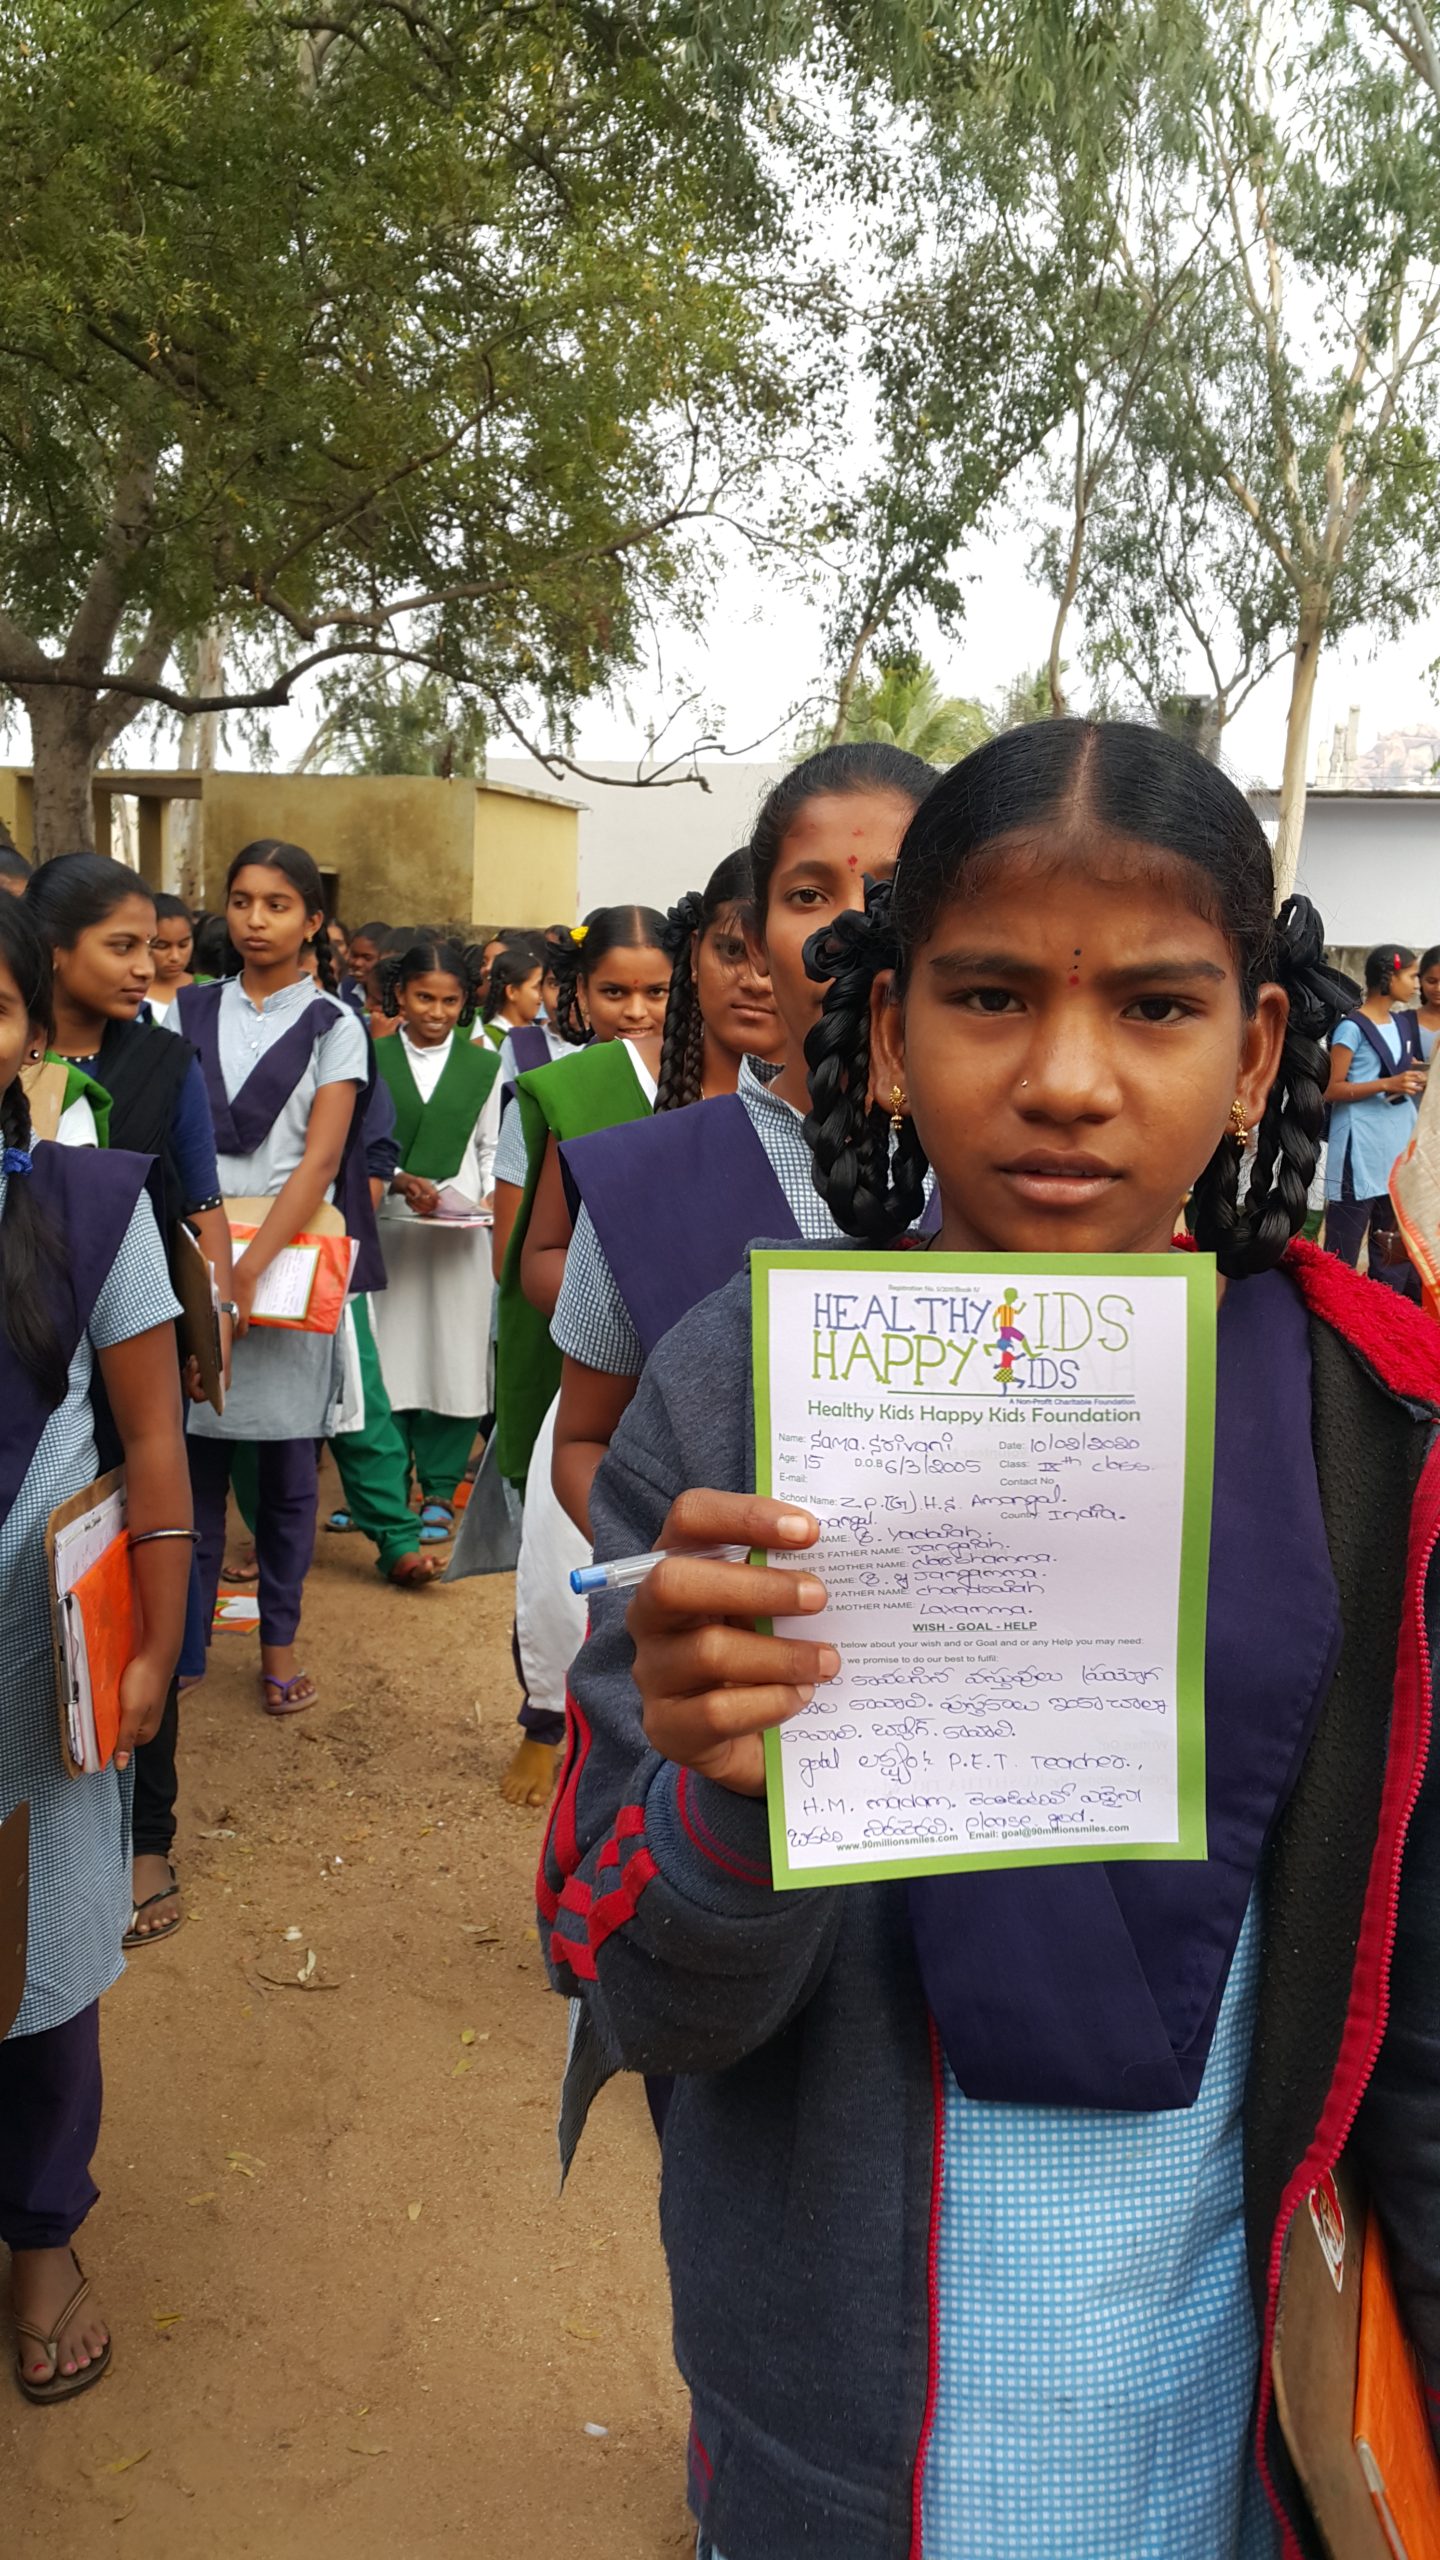 HEALTHY KIDS
HAPPY KIDS
A Non-Profit Charitable Foundation
Healthy Kids Happy Kids Foundation
Name: Sama. Srivani Date: 10/02/2020
Age: 15 D.O.B 6/3/2005 Class: IXth class.
E-mail: Contact No
School Name: Z.P.(G).H.S. Amangal.
angal. Country India.
NAME: B. Yadaiah.
FATHER'S FATHER NAME: Jangaiah.
MOTHER NAME: Narshamma.
NAME Jangamma.
FATHER NAME: chandraiah
S MOTHER NAME: Laxamma.
WISH - GOAL - HELP
below about your wish and or Goal and or any Help you may need:
we promise to do our best to fulfil:
కావలసిన వస్తువులు ప్రయోగ
కావాలి. పుస్తకాలు ఇంకా చాలా
కావాలి. బ్యాగ్. కావాలి.
goal లక్ష్యం: P.E.T. Teacher.,
H.M. madam. ఏదైనా
ఒకటి please god.
www.90millionsmiles.com Email: goal@90millionsmiles.com